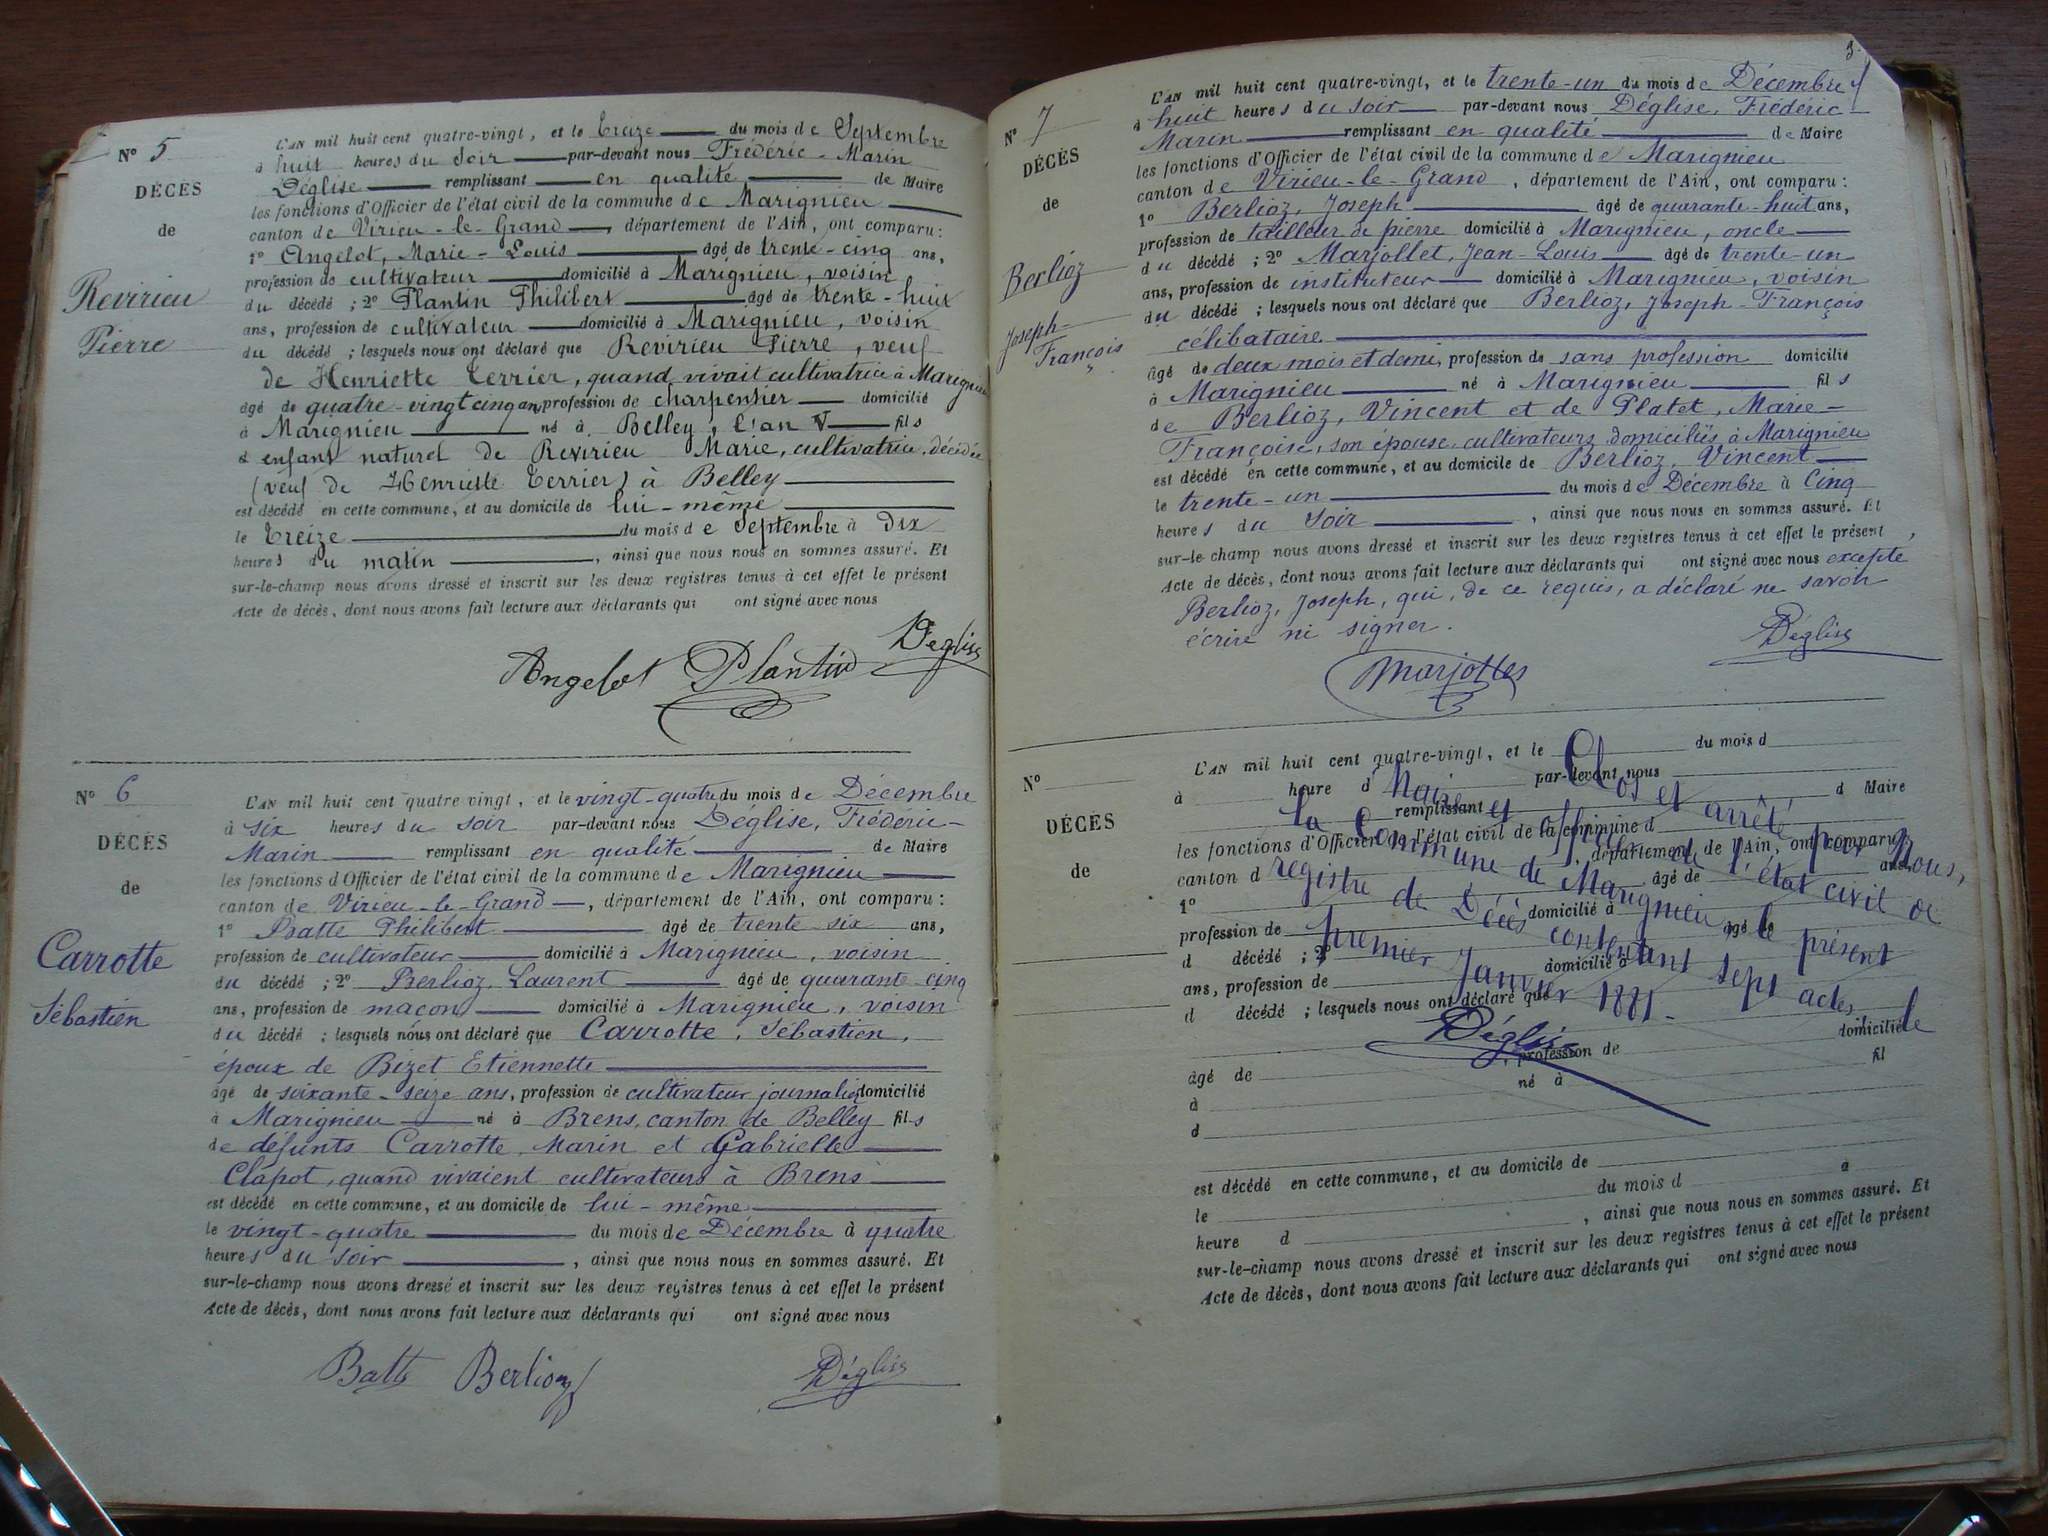 N° 5
DÉCÈS
de
Revirieu
Pierre
L'AN mil huit cent quatre-vingt, et le treize du mois de Septembre
à huit heures du Soir par-devant nous Frédéric-Marin
Déglise remplissant en qualité de Maire
les fonctions d'Officier de l'état civil de la commune de Marignieu
canton de Virieu-le-Grand, département de l'Ain, ont comparu:
1° Angelot, Marie-Louis âgé de trente-cinq ans,
profession de cultivateur domicilié à Marignieu, voisin
du décédé; 2° Plantin Philibert âgé de trente-huit
ans, profession de cultivateur domicilié à Marignieu, voisin
du décédé; lesquels nous ont déclaré que Revirieu Pierre, veuf
de Henriette Terrier, quand vivait cultivatrice à Marignieu
âgé de quatre-vingt cinq ans, profession de charpentier domicilié
à Marignieu né à Belley, l'an V fils
enfant naturel de Revirieu Marie, cultivatrice, décédée
(veuf de Henriette Terrier) à Belley
est décédé en cette commune, et au domicile de lui-même
le treize du mois de Septembre à dix
heures du matin, ainsi que nous nous en sommes assuré. Et
sur-le-champ nous avons dressé et inscrit sur les deux registres tenus à cet effet le présent
Acte de décès, dont nous avons fait lecture aux déclarants qui ont signé avec nous
Angelot Plantin Déglise
N° 6
DÉCÈS
de
Carrotte
Sébastien
L'AN mil huit cent quatre vingt, et le vingt-quatre du mois de Décembre
à six heures du soir par-devant nous Déglise, Frédéric-
Marin remplissant en qualité de Maire
les fonctions d'Officier de l'état civil de la commune de Marignieu
canton de Virieu-le-Grand, département de l'Ain, ont comparu:
1° Batte Philibert âgé de trente six ans,
profession de cultivateur domicilié à Marignieu, voisin
du décédé; 2° Berlioz, Laurent âgé de quarante cinq
ans, profession de maçon domicilié à Marignieu, voisin
du décédé; lesquels nous ont déclaré que Carrotte, Sébastien,
époux de Bizet Etiennette
âgé de soixante-seize ans, profession de cultivateur journalier domicilié
à Marignieu né à Brens, canton de Belley fils
de défunts Carrotte, Marin et Gabrielle
Clapot, quand vivaient cultivateurs à Brens
est décédé en cette commune, et au domicile de lui-même
le vingt-quatre du mois de Décembre à quatre
heures du soir, ainsi que nous nous en sommes assuré. Et
sur-le-champ nous avons dressé et inscrit sur les deux registres tenus à cet effet le présent
Acte de décès, dont nous avons fait lecture aux déclarants qui ont signé avec nous
Batte Berlioz Déglise
3.
N° 7
DÉCÈS
de
Berlioz
Joseph-
François
L'AN mil huit cent quatre-vingt, et le trente-un du mois de Décembre
à huit heures du soir par-devant nous Déglise, Frédéric
Marin remplissant en qualité de Maire
les fonctions d'Officier de l'état civil de la commune de Marignieu
canton de Virieu-le-Grand, département de l'Ain, ont comparu:
1° Berlioz, Joseph âgé de quarante-huit ans,
profession de tailleur de pierre domicilié à Marignieu, oncle
du décédé; 2° Marjollet, Jean-Louis âgé de trente-un
ans, profession de instituteur domicilié à Marignieu, voisin
du décédé; lesquels nous ont déclaré que Berlioz, Joseph-François
célibataire
âgé de deux mois et demi, profession de sans profession domicilié
à Marignieu né à Marignieu fils
de Berlioz, Vincent et de Platet, Marie-
Françoise, son épouse, cultivateurs domiciliés à Marignieu
est décédé en cette commune, et au domicile de Berlioz, Vincent
le trente-un du mois de Décembre à Cinq
heures du Soir, ainsi que nous nous en sommes assuré. Et
sur-le-champ nous avons dressé et inscrit sur les deux registres tenus à cet effet le présent
Acte de décès, dont nous avons fait lecture aux déclarants qui ont signé avec nous excepté
Berlioz, Joseph, qui, de ce requis, a déclaré ne savoir
écrire ni signer.
Marjollet Déglise
N°
DÉCÈS
de
L'AN mil huit cent quatre-vingt, et le du mois d
à heure d par-devant nous
remplissant d Maire
les fonctions d'Officier de l'état civil de la commune d
canton d, département de l'Ain, ont comparu:
1° âgé de ans,
profession de domicilié à
d décédé; 2° âgé de
ans, profession de domicilié à
d décédé; lesquels nous ont déclaré que
âgé de, profession de domicilié
à né à fil
d
est décédé en cette commune, et au domicile de
le du mois d à
heure d, ainsi que nous nous en sommes assuré. Et
sur-le-champ nous avons dressé et inscrit sur les deux registres tenus à cet effet le présent
Acte de décès, dont nous avons fait lecture aux déclarants qui ont signé avec nous
Clos et arrêté par Nous,
Maire et Officier de l'état civil de
la Commune de Marignieu le présent
registre de Décès contenant sept actes, le
premier Janvier 1881.
Déglise